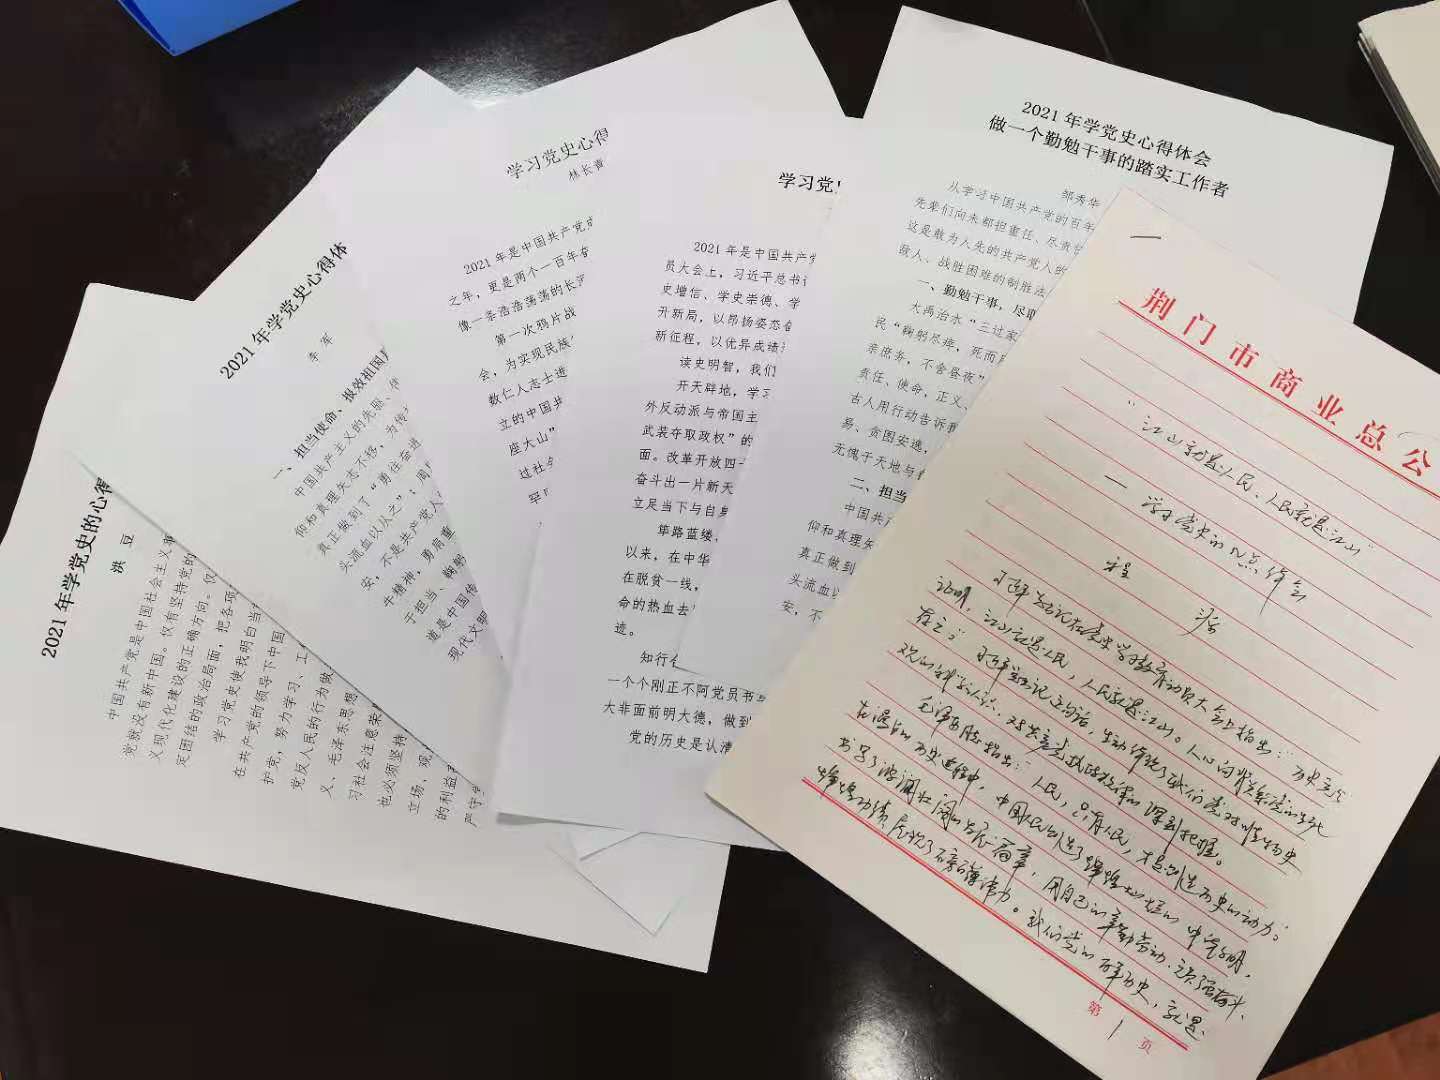 2021年学党史的心得
洪 豆
中国共产党是中国社会主义事
党就没有新中国。仅有坚持党的
义现代化建设的正确方向。仅
定团结的政治局面，把各项
学习党史使我明白当
在共产党的领导下中国
护党，努力学习、工
党反人民的行为做
义、毛泽东思想
习社会注意荣
也必须坚持
立场、观
的利益
严守
2021年学党史心得体
李 军
一、担当使命、报效祖国
中国共产主义的先驱、
仰和真理矢志不移，为传
真正做到了“勇往奋进
头流血以从之”；周
安，不是共产党人
牛精神，勇肩重
于担当、鞠躬
道是中国传
现代文明
学习党史心得
林长喜
2021年是中国共产党成
之年，更是两个一百年奋
像一条浩浩荡荡的长河
第一次鸦片战
会，为实现民族
数仁人志士进
立的中国共
座大山”
过社会
学习党
2021年是中国共产党
员大会上，习近平总书记
史增信、学史崇德、学
升新局，以昂扬姿态奋
新征程，以优异成绩
读史明智，我们
开天辟地，学习
外反动派与帝国主
武装夺取政权”的
面。改革开放四十
奋斗出一片新天
立足当下与自身
筚路蓝缕、
以来，在中华
在脱贫一线，
命的热血去
迹。
知行合
一个个刚正不阿党员书写
大非面前明大德，做到
党的历史是认清
2021年学党史心得体会
做一个勤勉干事的踏实工作者
邹秀华
从学习中国共产党的百年
先辈们向来都担重任、尽责
这是敢为人先的共产党人的
敌人、战胜困难的制胜法
一、勤勉干事，尽职
大禹治水“三过家
民“鞠躬尽瘁，死而后
亲庶务，不舍昼夜”
责任、使命，正义、
古人用行动告诉我
易、贪图安逸，
无愧于天地与
二、担当
中国共产
仰和真理矢
真正做到
头流血以
安，不
荆门市商业总公
“江山就是人民、人民就是江山”
— 学习党史的几点体会
程
习近平总书记在党史学习教育动员大会上指出：“历史充分
证明，江山就是人民，人民就是江山。人心向背关系党的生死
存亡。”习近平总书记这句话，生动体现了我们党对唯物史
观的科学认识、对共产党执政规律的深刻把握。
毛泽东同志指出：“人民，只有人民，才是创造历史的动力。”
在漫长的历史进程中，中国人民创造了辉煌灿烂的中华文明，
书写了波澜壮阔的发展篇章，用自己的辛勤劳动、顽强奋斗、
辉煌功绩，展现了磅礴伟力。我们党的百年历史，就是
第 1 页